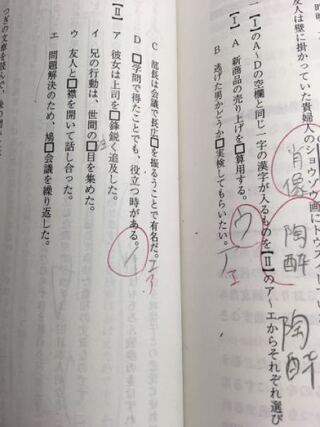 友人は壁に掛かっていた貴婦人のショウゾウ画にトウスイ
肖像
陶酔
陶酔
【Ⅰ】のA～Dの空欄と同じ一字の漢字が入るものを【Ⅱ】のア～エからそれぞれ選び
【Ⅰ】 A 新商品の売り上げを□算用する。
ウ
B 逃げた男かどうか□実検してもらいたい。
エ
C 部長は会議で長広□を振るうことで有名だ。
ア
D □学問で得たことでも、役立つ時がある。
イ
【Ⅱ】 ア 彼女は上司を□鋒鋭く追及した。
イ 兄の行動は、世間の□目を集めた。
ウ 友人と□襟を開いて話し合った。
エ 問題解決のため、鳩□会議を繰り返した。
つぎの文章を読んで、後の